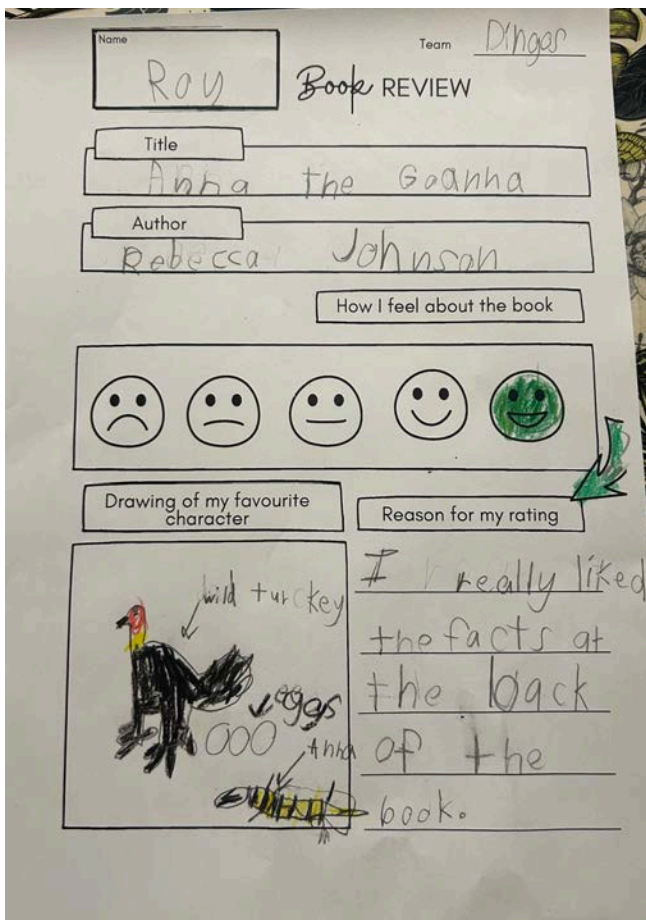 Name
Team Dingos
Roy
Book REVIEW
Title
Anna the Goanna
Author
Rebecca Johnson
How I feel about the book
Drawing of my favourite
character
Reason for my rating
wild turckey
eggs
Anna
I really liked
the facts at
the back
of the
book.